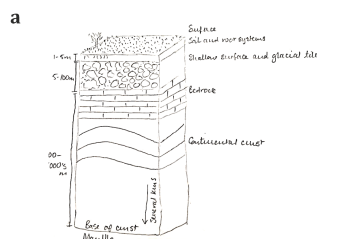 a
Surface
Soil and root systems
1-5m
Shallow surface and glacial tile
5-100m
Bedrock
Continental crust
00-
000's
m
Several kms
Base of crust
Mantle